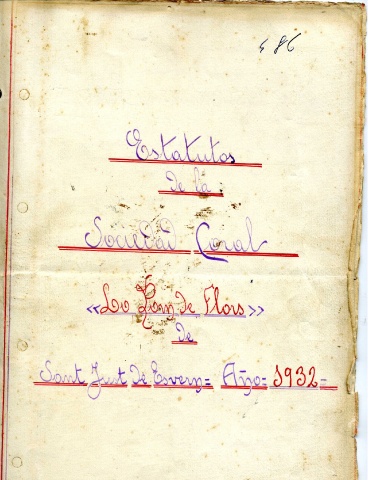 486
Estatutos
de la
Sociedad Coral
«Lo Pom de Flors»
de
Sant Just de Esvern= Año= 1932=